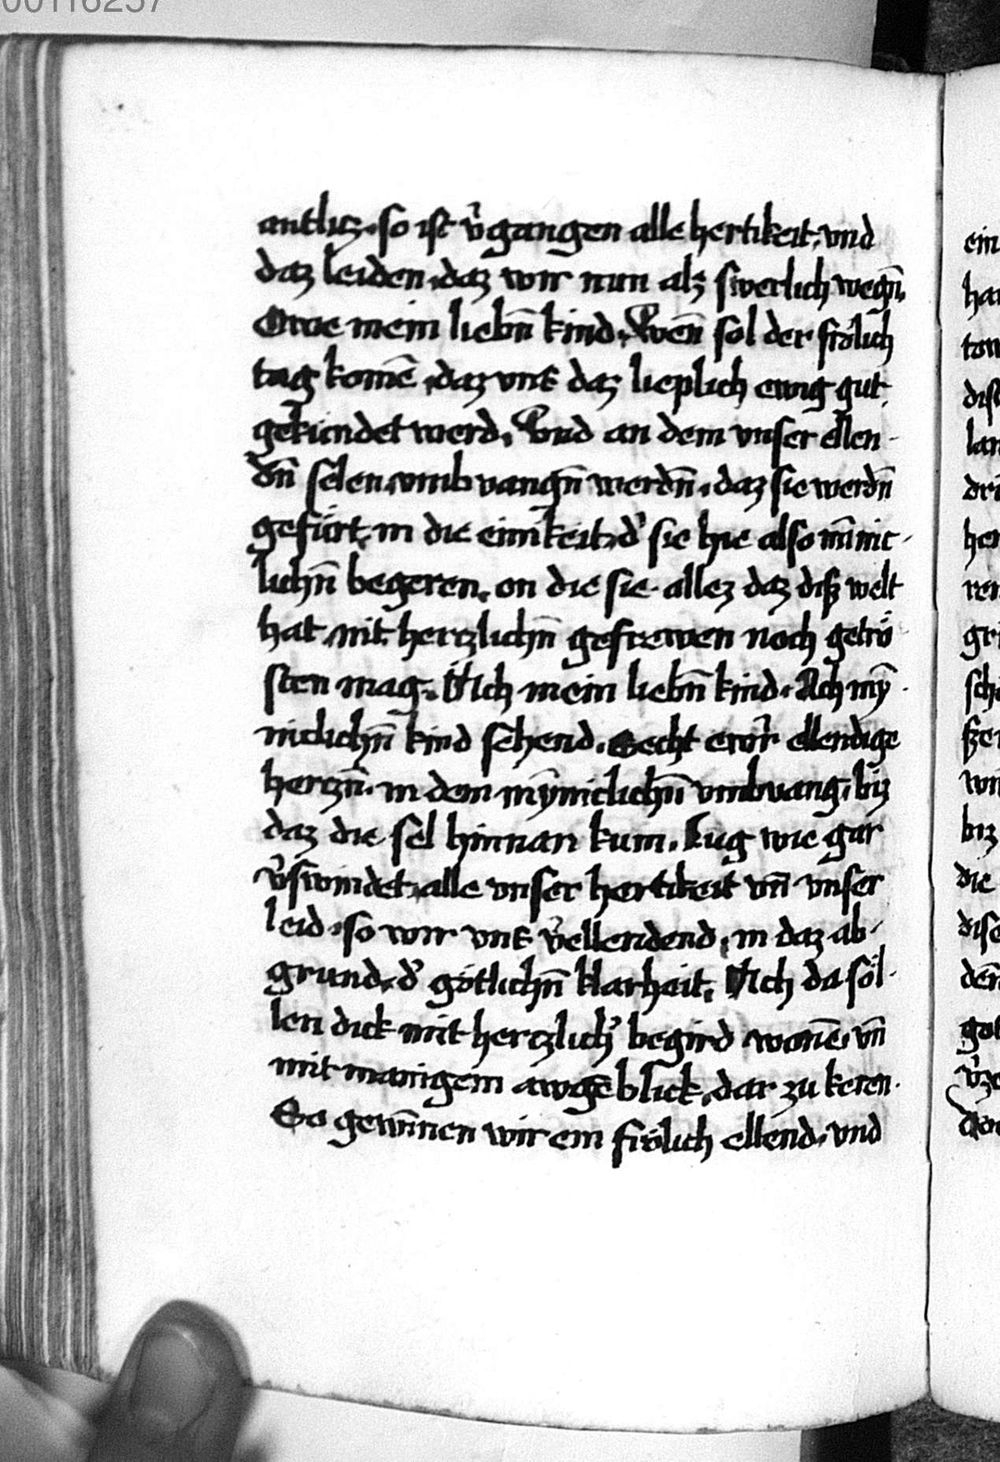 00116257
antlitz. so ist v̾gangen alle hertikeit. vnd
daz leiden. daz wir nun alz swerlich wegn̄.
Owe mein liebn̄ kind. Wen̄ sol der frölich
tag komē. daz vns daz lieplich ewig gut
gekundet werd. Vnd an dem vnser ellen-
dn̄ selen vmbvangn̄ werdn̄. daz sie werdn̄
gefürt. in die einikeit. d̾ sie hie also m̄inic-
lichn̄ begeren. on die sie allez daz disz welt
hat. nit hertzlichn̄ gefrewen noch getrö-
sten mag. Ach mein liebn̄ kind. Ach my̅-
niclichn̄ kind sehend. Secht ewr̾ ellendige
hertzn̄. in dem my̅niclichn̄ vmbvang. biz
daz die sel hinnan kum. Lug wie gar
v̾swindet. alle vnser hertikeit vn̄ vnser
leid. so wir vns v̾ellendend. in daz ab-
grund. d̾ götlichn̄ klarheit. Ach da söl-
len dick mit hertzlich̾ begird wonē. vn̄
mit manigem awgēblick. dar zu keren.
So gewīnen wir ein frölich ellend. vnd
ein